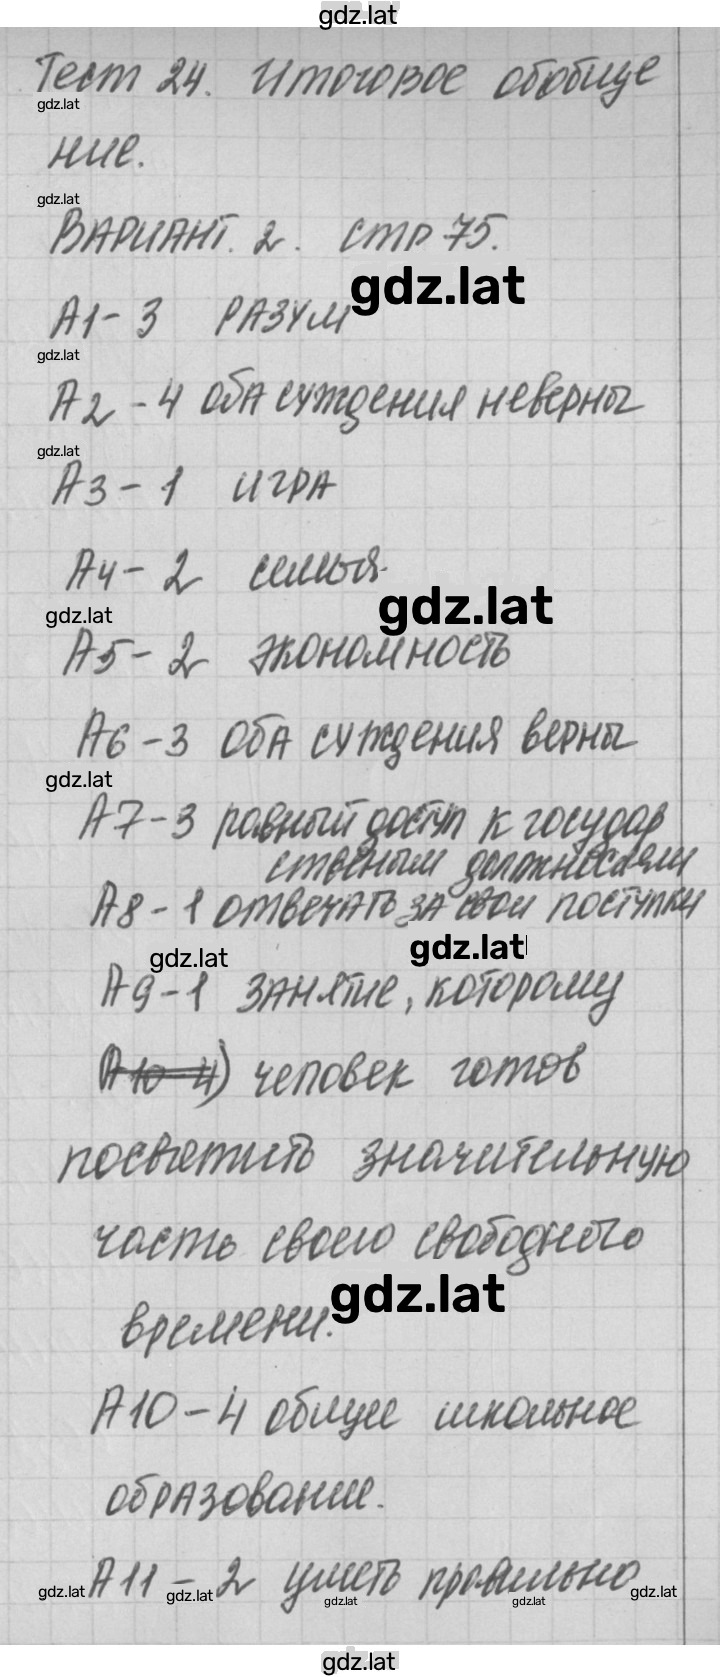 gdz.lat
Тест 24. Итоговое обобще
gdz.lat
ние.
gdz.lat
ВАРИАНТ. 2. стр 75.
gdz.lat
А1 - 3 РАЗУМ
gdz.lat
А2 - 4 оба суждения неверны
gdz.lat
А3 - 1 ИГРА
А4 - 2 семья
gdz.lat gdz.lat
А5 - 2 экономность
А6 - 3 оба суждения верны
gdz.lat
А7 - 3 равный доступ к государ
ственым должностям
А8 - 1 отвечать за свои поступки
gdz.lat gdz.lat
А9 - 1 занятие, которому
А10 - 4) человек готов
посвятить значительную
часть своего свободного
gdz.lat
времени.
А10 - 4 общее школьное
образование.
А11 - 2 уметь правильно
gdz.lat gdz.lat gdz.lat gdz.lat gdz.lat
gdz.lat